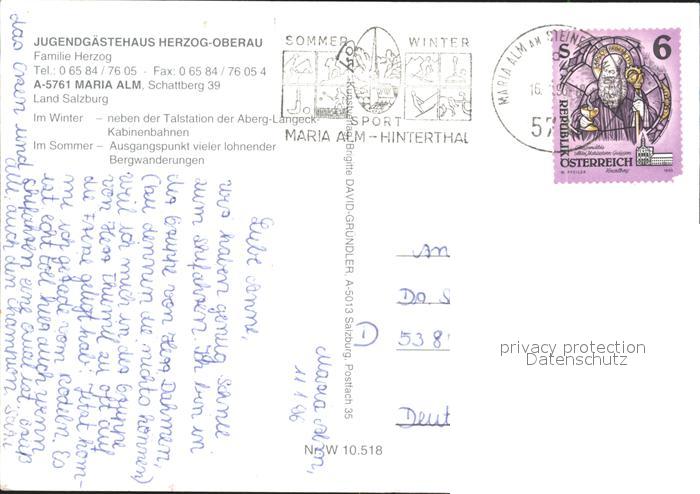 JUGENDGÄSTEHAUS HERZOG-OBERAU
Familie Herzog
Tel.: 0 65 84 / 76 05 · Fax: 0 65 84 / 76 05 4
A-5761 MARIA ALM, Schattberg 39
Land Salzburg
Im Winter – neben der Talstation der Aberg-Langeck-
Kabinenbahnen
Im Sommer – Ausgangspunkt vieler lohnender
Bergwanderungen
SOMMER WINTER
SPORT
MARIA ALM – HINTERTHAL
MARIA ALM AM STEINE
16.
57
6
REPUBLIK
ÖSTERREICH
Kunstverlag Brigitte DAVID-GRÜNDLER, A-5013 Salzburg, Postfach 35
Nr. W 10.518
Maria Alm,
11.1.96
Liebe Anna,
wir haben genug Schnee
zum skifahren. Ich bin in
der Gruppe von Herr Dahmen,
(bei dem nun die nichts können)
weil ich mich in der Gruppe
von Herr Thümmel zu oft auf
die gelegt hab. Jetzt kom-
me ich gerade vom Rodeln. Es
ist echt toll hier auch wenn
skifahren
auch den
An
Do S
538
Deut
privacy protection
Datenschutz